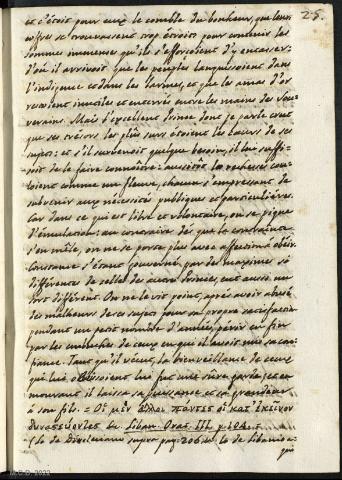 25.
et c'étoit pour eux le comble du bonheur, que leurs
coffres se trouvassent trop étroits pour contenir les
sommes immenses qu'ils s'efforçoient d'y encasser:
d'où il arrivoit que les peuples languissoient dans
l'indigence et dans les larmes, et que les amas d'or
restoient inutiles et enterrés entre les mains des Sou-
verains. Mais l'excellent Prince dont je parle crut
que ses trésors les plus surs étoient les coeurs de ses
sujets: et s'il survenoit quelque besoin, il lui suffi-
soit de le faire connoitre: aussitôt les richesses cou-
loient comme un fleuve, chacun s'empressant de
subvenir aux nécessités publiques et particulières.
Car dans ce qui est libre et volontaire, on se pique
d'émulation: au contraire dès que la contrainte
s'en mêle, on ne se porte plus avec affection à obéir.
Constance s'étant gouverné par des maximes si
différentes de celles des autres Princes, eut aussi un
sort différent. On ne le vit point, après avoir abusé
des malheurs de ses sujets pour sa propre satisfaction
pendant un petit nombre d'années, périr en fin
par les embuches de ceux en qui il avoit mis sa con-
fiance. Tant qu'il vécut, la bienveillance de ceux
qui lui obéissoient lui fut une sûre garde; et en
mourant il laissa sa puissance et sa grandeur
à son fils. = Οἱ μὲν ἄλλοι παντες οἱ κατ' ἐκεῖνον
δυναστεύοντες &c. Liban. Orat. III. p. 104.
de Diocletiano supra pag. 206 et de Libanio
qui